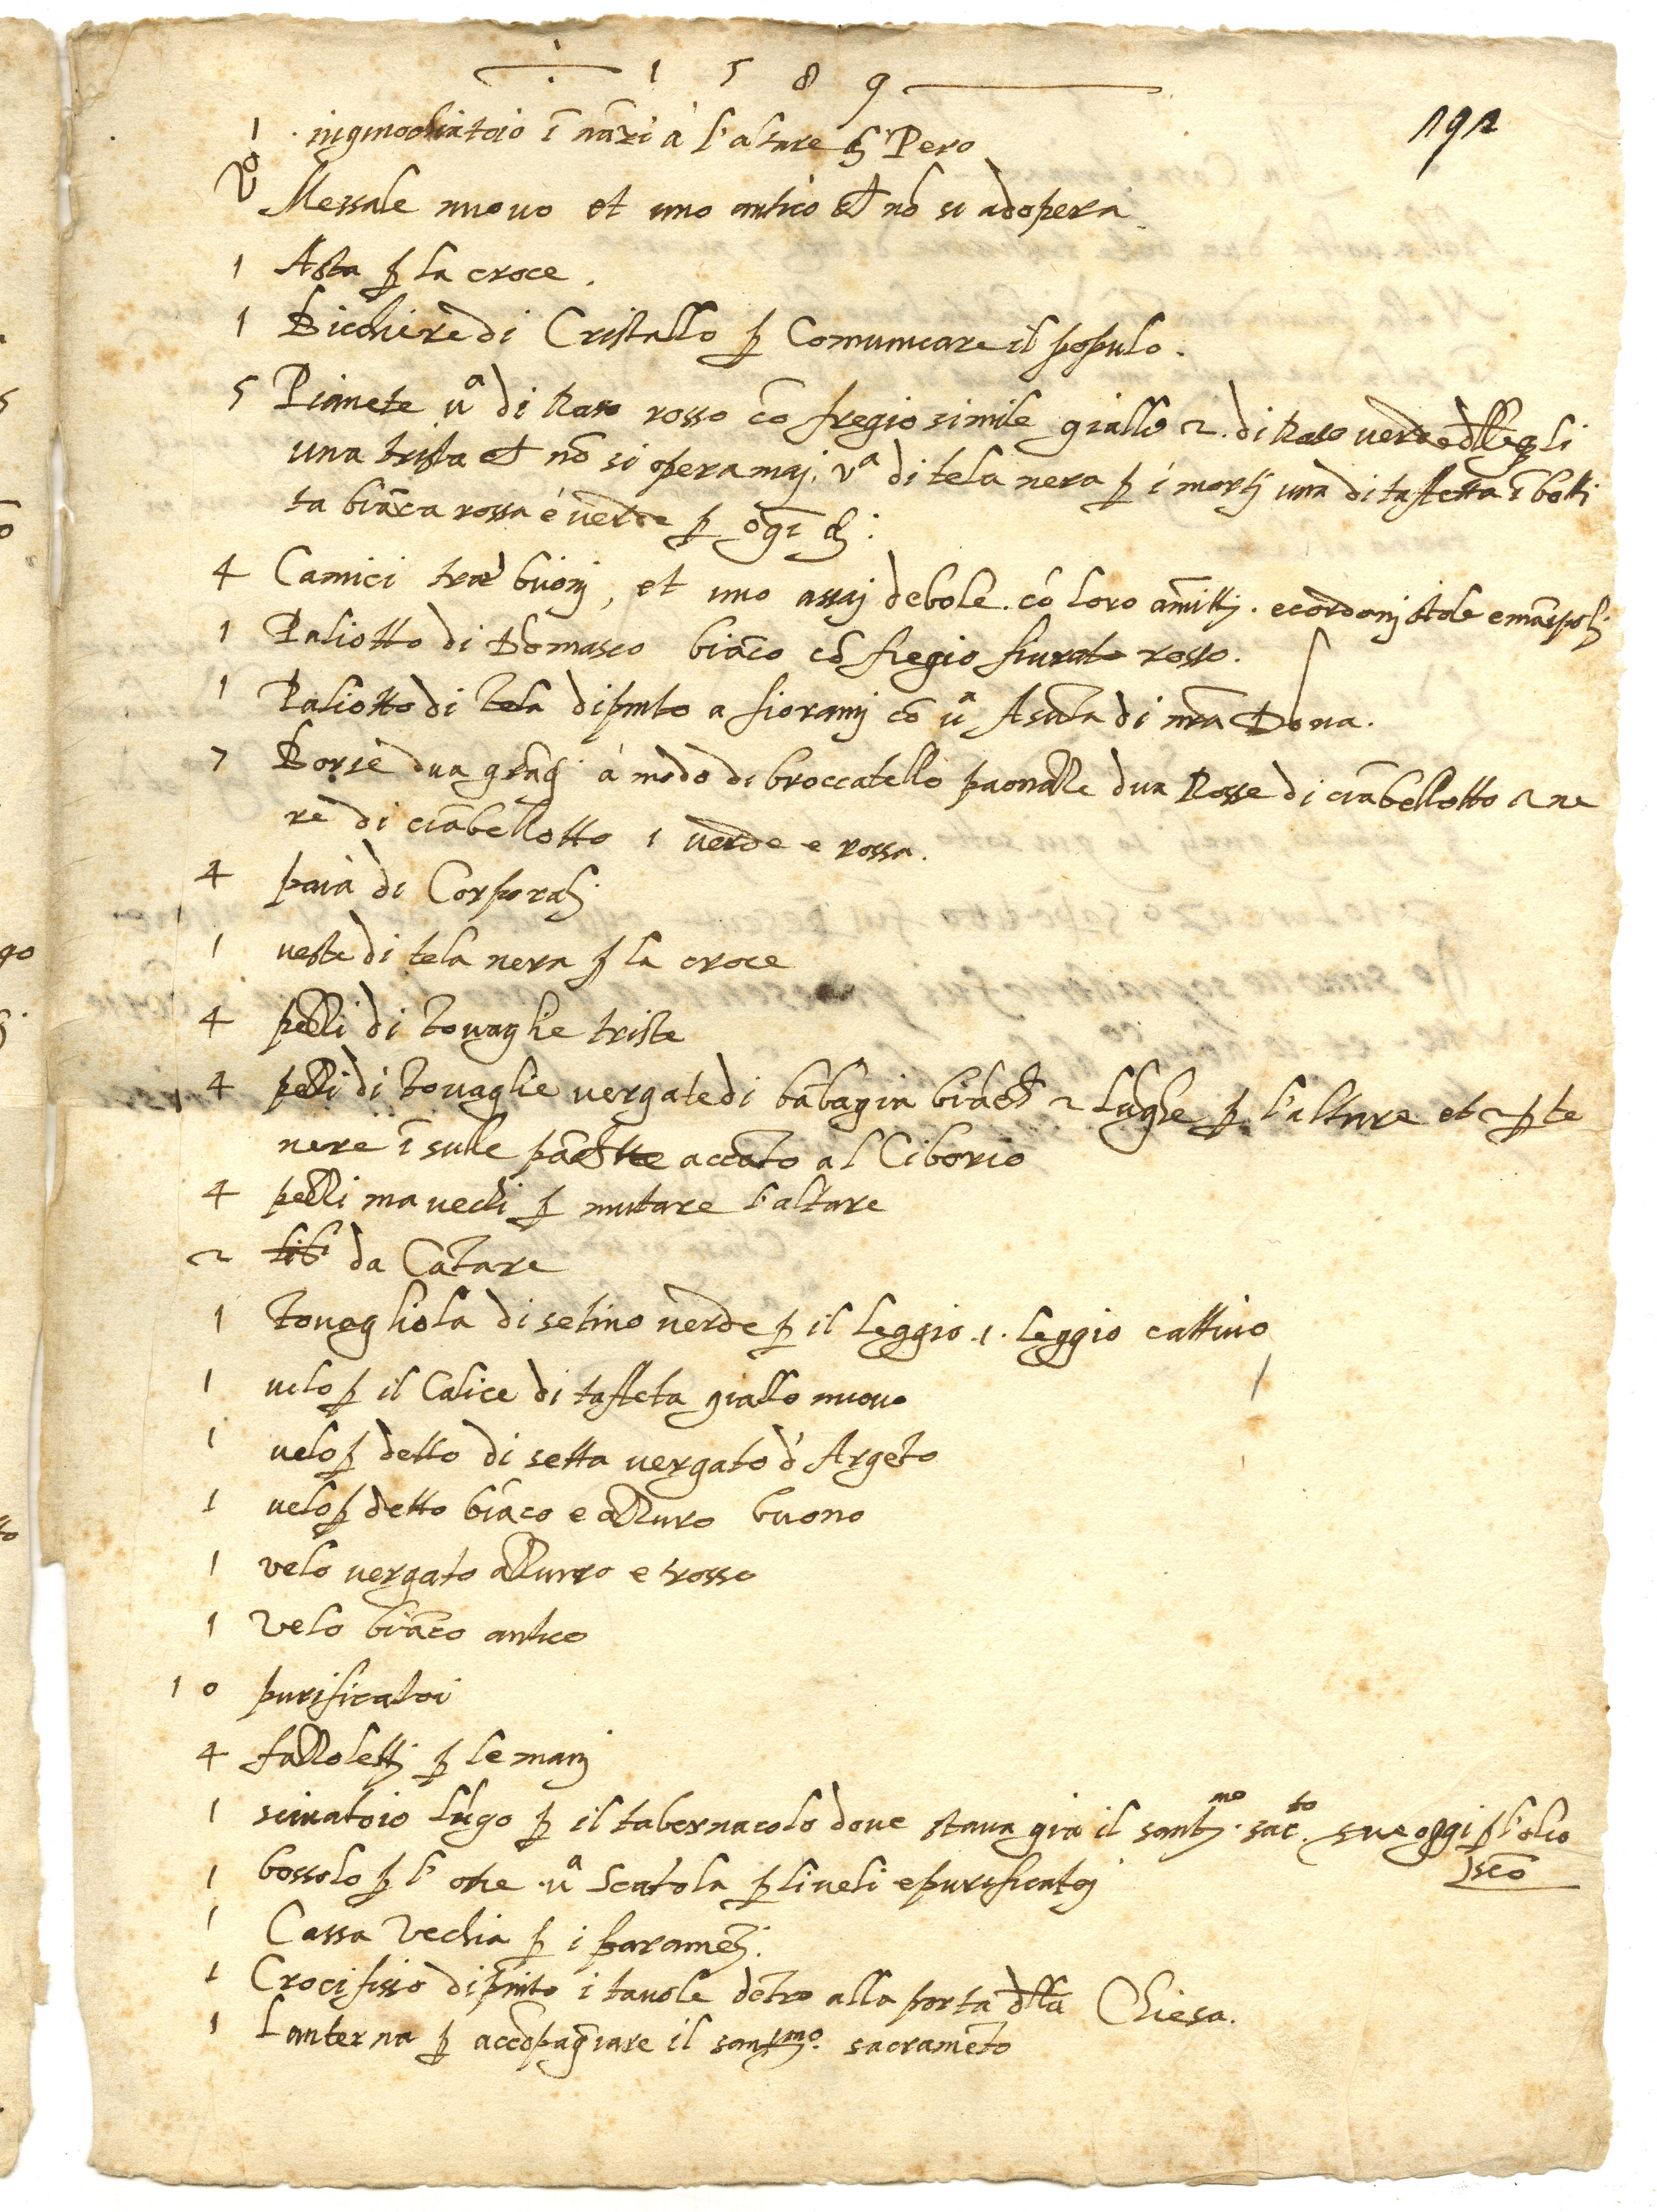 1589
191
1 ingnochiatoio ī nāzi à l'altare di Pero
Messale nuovo et uno antico che nō si adopera
1 Asta ꝑ la croce.
1 Bicchiere di Cristallo ꝑ Comunicare il populo.
5 Pianete uᵃ di Raso rosso cō fregio simile giallo 2. di Raso verde
una trista et nō si opera maj. vᵃ di tela nera ꝑ i mortj una di taffetta ī botti
ta biāca rossa e verde ꝑ ogī dj:
4 Camici trae buonj, et uno assaj debole. cō loro āmittj. e cordonj stole e manipolj
1 Paliotto di Domasco biāco cō fregio fiurato rosso.
1 Paliotto di tela dipinto a fioramj cō uᵃ Asūta di nrā Dōna.
7 Borse dua grādj à modo di broccatello paonazze dua Rosse di ciābellotto 2 ne
re di ciābellotto 1 verde e rossa.
4 paia di Corporalj
1 veste di tela nera ꝑ la croce
4 pezzi di tovaglie triste
4 pezzi di tovaglie vergate di bābagia biāche 2 lūghe ꝑ l'altare et 2 ꝑ te
nere ī sulle pāchette accāto al Ciborio
4 pezzi ma vechi ꝑ mutare l'altare
2 libri da Cātare
1 tovagliola di setino verde ꝑ il leggio .1. leggio cattivo
1 velo ꝑ il Calice di taffeta giallo nuovo
1 velo ꝑ detto di setta vergato d'Argēto
1 velo ꝑ detto biāco e azzurro buono
1 velo vergato azzurro e rosso
1 velo biāco antico
10 purificatoi
4 fazzolettj ꝑ le manj
1 sciuatoio lūgo ꝑ il tabernacolo dove stava gia il santjᵐᵒ. sacᵗᵒ. serve oggi ꝑ l'olio
sctō
1 bossolo ꝑ l'oste uᵃ Scatola ꝑ li veli e purificatoj
1 Cassa vechia ꝑ i paramētj.
1 Crocifisso dipinto ī tavole dētro alla porta dlla Chiesa.
1 Lanterna ꝑ accōpagniare il santjᵐᵒ. sacramēto